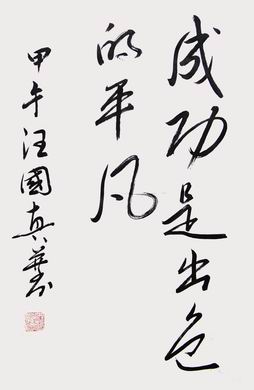 成功是出色
的平凡
甲午汪國真書